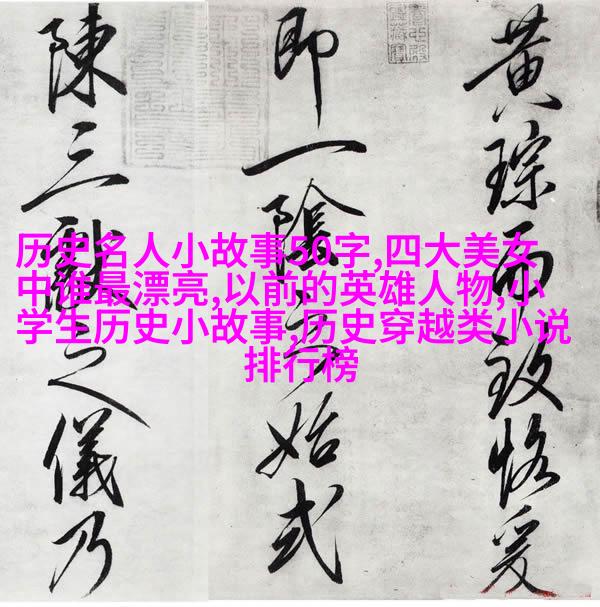 历史名人小故事50字,四大美女
中谁最漂亮,以前的英雄人物,小
学生历史小故事,历史穿越类小说
排行榜
黄琮而致恪爰
即一陰始式
陳三獻之儀乃